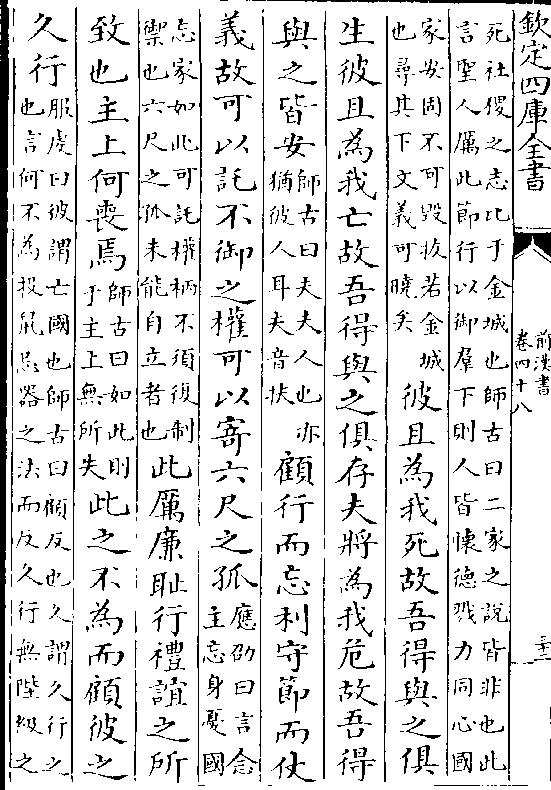 欽定四庫全書
前漢書
卷四十八
三十三
死社稷之志比于金城也師古曰二家之說皆非也此
言聖人厲此節行以御羣下則人皆懷德戮力同心國
家安固不可毀拔若金城
也尋其下文義可曉矣
彼且為我死故吾得與之俱
生彼且為我亡故吾得與之俱存夫將為我危故吾得
與之皆安
師古曰夫夫人也亦
猶彼人耳夫音扶
顧行而忘利守節而仗
義故可以託不御之權可以寄六尺之孤
應劭曰言念
主忘身憂國
忘家如此可託權柄不須復制
禦也六尺之孤未能自立者也
此厲廉恥行禮誼之所
致也主上何喪焉
師古曰如此則
于主上無所失
此之不為而顧彼之
久行
服虔曰彼謂亡國也師古曰顧反也久謂久行之
也言何不為投鼠忌器之法而反久行無陛級之